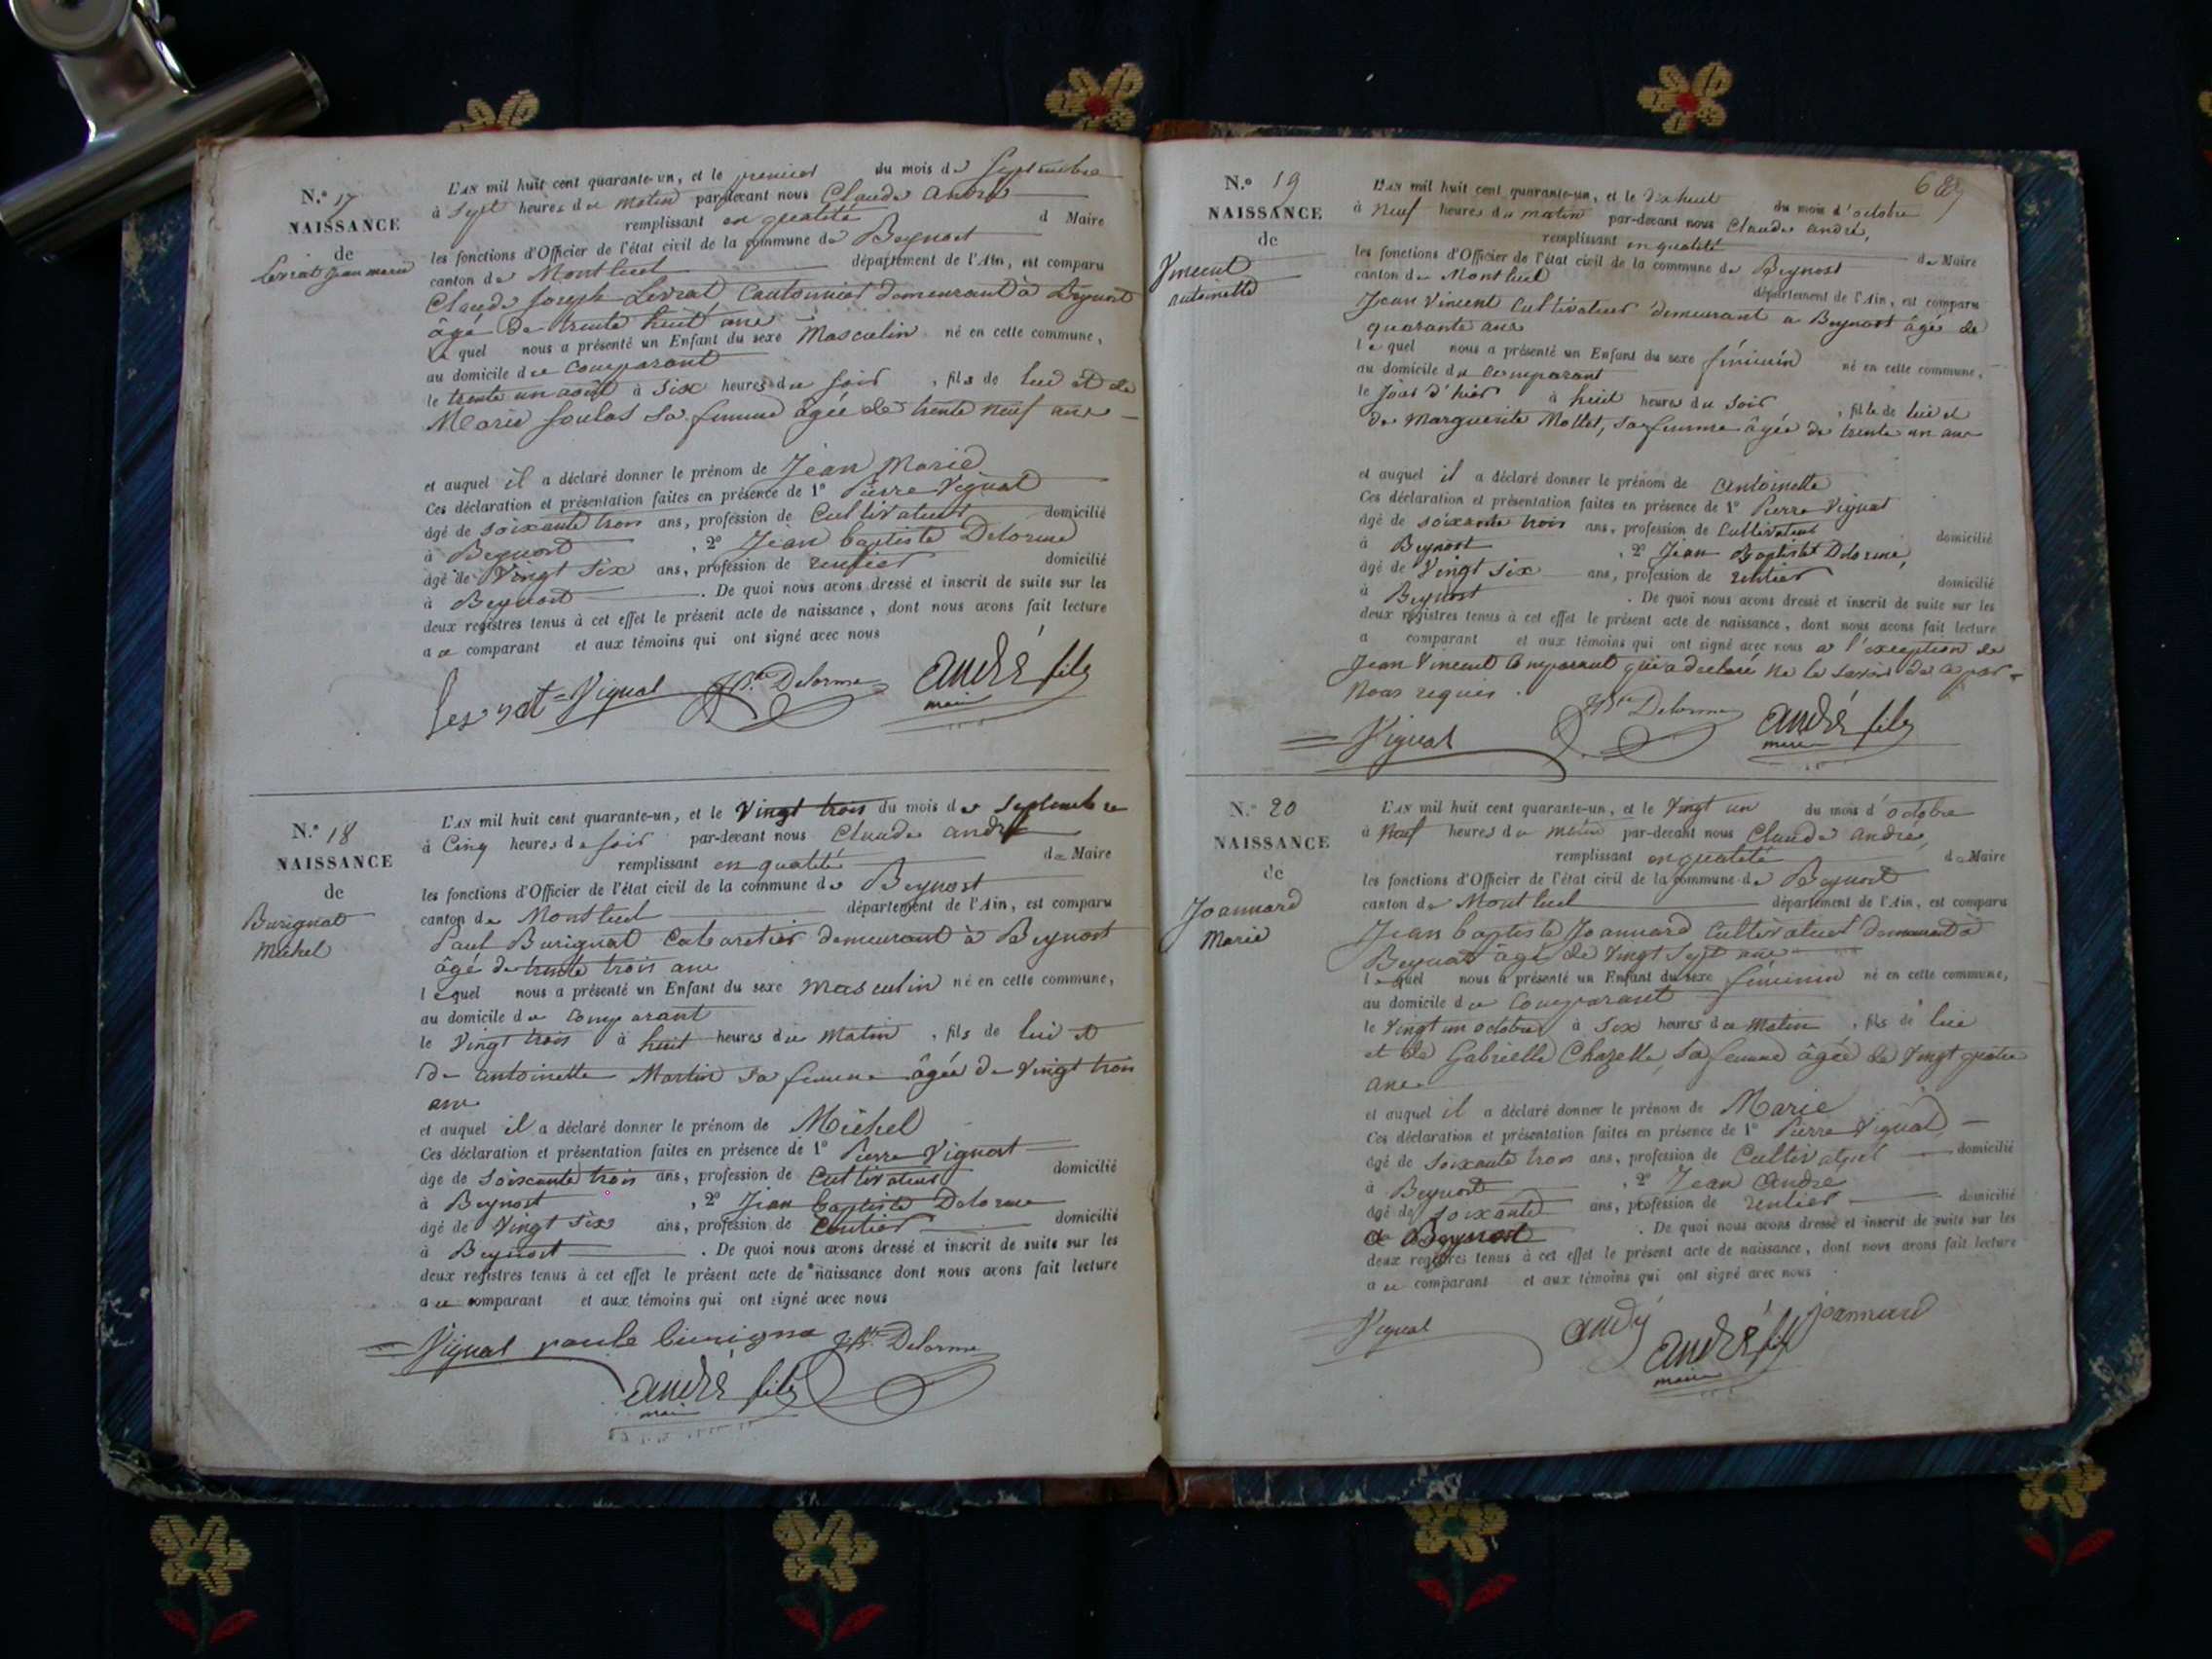 N.° 17
NAISSANCE
de
Levrat Jean Marie
L'AN mil huit cent quarante-un, et le premier du mois de Septembre
à Sept heures du matin par-devant nous Claude André
remplissant en qualité d Maire
les fonctions d'Officier de l'état civil de la commune de Beynost
canton de Montluel département de l'Ain, est comparu
Claude Joseph Levrat, Cantonnier demeurant à Beynost
âgé de trente huit ans
le quel nous a présenté un Enfant du sexe Masculin né en cette commune,
au domicile du comparant
le trente un août à Six heures du soir, fils de lui et de
Marie Soulas sa femme âgée de trente neuf ans
et auquel il a déclaré donner le prénom de Jean Marie
Ces déclaration et présentation faites en présence de 1° Pierre Vignat
âgé de soixante trois ans, profession de Cultivateur domicilié
à Beynost, 2° Jean baptiste Delorme
âgé de Vingt Six ans, profession de rentier domicilié
à Beynost. De quoi nous avons dressé et inscrit de suite sur les
deux registres tenus à cet effet le présent acte de naissance, dont nous avons fait lecture
au comparant et aux témoins qui ont signé avec nous
Vignat JBte Delorme André fils
maire
N.° 18
NAISSANCE
de
Burignat
Michel
L'AN mil huit cent quarante-un, et le Vingt trois du mois de Septembre
à Cinq heures de soir par-devant nous Claude André
remplissant en qualité de Maire
les fonctions d'Officier de l'état civil de la commune de Beynost
canton de Montluel département de l'Ain, est comparu
Paul Burignat Cabaretier demeurant à Beynost
âgé de trente trois ans
lequel nous a présenté un Enfant du sexe masculin né en cette commune,
au domicile du comparant
le Vingt trois à huit heures du matin, fils de lui et
de antoinette Martin sa femme âgée de Vingt trois
ans
et auquel il a déclaré donner le prénom de Michel
Ces déclaration et présentation faites en présence de 1° Pierre Vignat
âge de Soixante trois ans, profession de Cultivateur domicilié
à Beynost, 2° Jean baptiste Delorme
âgé de Vingt Six ans, profession de rentier domicilié
à Beynost. De quoi nous avons dressé et inscrit de suite sur les
deux registres tenus à cet effet le présent acte de naissance dont nous avons fait lecture
au comparant et aux témoins qui ont signé avec nous
Vignat paule burigna JBte Delorme
André fils
maire
N.° 19
NAISSANCE
de
Vincent
antoinette
L'AN mil huit cent quarante-un, et le dix huit du mois d'octobre
à Neuf heures du matin par-devant nous Claude andré,
remplissant en qualité de Maire
les fonctions d'Officier de l'état civil de la commune de Beynost
canton de Montluel département de l'Ain, est comparu
Jean Vincent Cultivateur demeurant a Beynost âgé de
quarante ans
lequel nous a présenté un Enfant du sexe féminin né en cette commune,
au domicile du Comparant
le Jour d'hier à huit heures du Soir, fille de lui et
de Marguerite Mollet, sa femme âgée de trente un ans
et auquel il a déclaré donner le prénom de antoinette
Ces déclaration et présentation faites en présence de 1° Pierre Vignat
âgé de soixante trois ans, profession de Cultivateur domicilié
à Beynost, 2° Jean Baptiste Delorme,
âgé de Vingt Six ans, profession de rentier domicilié
à Beynost. De quoi nous avons dressé et inscrit de suite sur les
deux registres tenus à cet effet le présent acte de naissance, dont nous avons fait lecture
a comparant et aux témoins qui ont signé avec nous a l'exception de
Jean Vincent Comparant qui a déclaré ne le savoir de ce par
Nous requis.
Vignat JBte Delorme André fils
maire
N.° 20
NAISSANCE
de
Joannard
Marie
L'AN mil huit cent quarante-un, et le Vingt un du mois d'octobre
à Neuf heures du matin par-devant nous Claude andré,
remplissant en qualité de Maire
les fonctions d'Officier de l'état civil de la commune de Beynost
canton de Montluel département de l'Ain, est comparu
Jean baptiste Joannard Cultivateur demeurant à
Beynost âgé de Vingt Sept ans
lequel nous a présenté un Enfant du sexe féminin né en cette commune,
au domicile du Comparant
le Vingt un octobre à Six heures du Matin, fils de lui
et de Gabrielle Chazelle, sa femme âgée de Vingt quatre
ans
et auquel il a déclaré donner le prénom de Marie
Ces déclaration et présentation faites en présence de 1° Pierre Vignat
âgé de Soixante trois ans, profession de Cultivateur domicilié
à Beynost, 2° Jean André
âgé de Soixante ans, profession de rentier domicilié
a Beynost. De quoi nous avons dressé et inscrit de suite sur les
deux registres tenus à cet effet le présent acte de naissance, dont nous avons fait lecture
au comparant et aux témoins qui ont signé avec nous
Vignat André joannard
André fils
maire